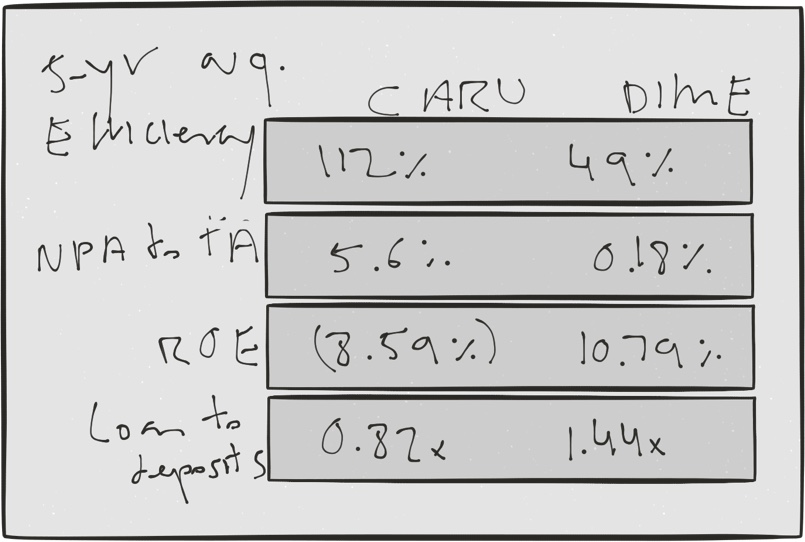 5-yr avg.
CARV DIME
Efficiency 112% 49%
NPA to TA 5.6% 0.18%
ROE (8.59%) 10.79%
Loan to deposits 0.82x 1.44x